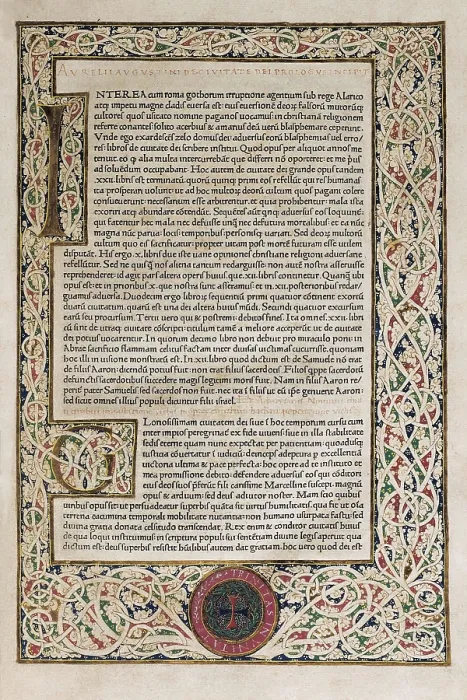 AVRELII AVGVSTINI DE CIVITATE DEI PROLOGVS INCIPIT
INTEREA cum roma gothorum irruptione agentum sub rege Alarico
atq; impetu magne cladis euersa est: eius euersionē deoƺ falsoƺ mītorūq;
cultores quos usitato nomine paganos uocamus in christianā religionem
referre conantes solito acerbius & amarius deū ueꝝ blasphemare ceperunt.
Vnde ego exardescēs zelo domus dei aduersus eorū blasphemias uel erro/
res: libros de ciuitate dei scribere institui. Quod opus per aliquot annos me
tenuit. eo q alia multa intercurrebāt que differri nō oporteret: et me prius
ad soluēdum occupabant. Hoc autem de ciuitate dei grande opus tandem
.xxii. libris est terminatū. quorū quinq; primi eos refellūt qui res humanas
ita prosperari uolunt: ut ad hoc multoƺ deorū cultum quos pagani colere
consueuerunt: necessarium esse arbitrentur. et quia prohibentur: mala ista
exoriri atq; abundare cōtendūt. Sequētes aūt qnq; aduersus eos loquunt:
qui fatentur hec mala nec defuisse unq; nec defutura mortalibus: et ea nūc
magna nūc parua: locis temporibus personisq; uariari. Sed deoƺ multorū
cultum quo eis sacrificatur: propter uitam post mortē futuram esse utilem
disputāt. His ergo .x. libris due iste uane opiniones christiane religioni aduersarie
refellūtur. Sed ne quisq; nos aliena tantum redarguisse: non autē nostra asseruisse
reprehenderet: id agit pars altera operis huius que .xii. libris continetur. Quanq; ubi
opus est: et in prioribus .x. que nostra sunt asseramus: et in .xii. posterioribus redar/
guamus aduersa. Duodecim ergo libroƺ sequentiū primi quatuor cōtinent exortū
duarū ciuitatum. quarū est una dei altera huius mūdi. Secundi quatuor excursum
earū seu procursum. Tertii uero qui & postremi: debitos fines. Ita omēs .xxii. libri
cū sint de utraq; ciuitate cōscripti: titulum tamē a meliore acceperūt. ut de ciuitate
dei potius uocarentur. In quorum decimo libro non debuit pro miraculo poni: in
Abrae sacrificio flammam celitus factam inter diuisas uictimas cucurrisse. quoniam
hoc illi in uisione monstratū est. In .xvii. libro quod dictum est de Samuele nō erat
de filiis Aaron: dicendū potius fuit: non erat filius sacerdotis. Filios qppe sacerdotū
defunctis sacerdotibus succedere magis legitimi moris fuit. Nam in filiis Aaron re/
peritur pater Samuelis sed sacerdos non fuit. nec ita ī filiis ut eū ipse genuerit Aaron:
sed sicut omnes illius populi dicuntur filii israel.
GLoriosissimam ciuitatem dei siue ī hoc temporum cursu cum
inter impios peregrinat ex fide uiuens: siue in illa stabilitate
sedis eterne quam nunc expectat per patientiam: quoadusq;
iustitia cōuertatur ī iudiciū: deinceps adeptura p excellentiā
uictoria ultima & pace perfecta: hoc opere ad te instituto et
mea promissione debito: defendere aduersus eos qui cōditori
eius deos suos pferūt: fili carissime Marcelline suscepi. magnū
opus & arduum: sed deus adiutor noster. Nam scio quibus
uiribus opus sit: ut persuadeatur superbis quāta sit uirtus humilitatis. qua fit ut oīa
terrena cacumina temporali mobilitate nutantia: non humano usurpata fastu: sed
diuina gratia donata celsitudo transcendat. Rex enim & conditor ciuitatis huius
de qua loqui instituimus: in scriptura populi sui sententiam diuine legis aperuit qua
dictum est: deus superbis resistit: hūilibus autem dat gratiam. hoc uero quod dei est